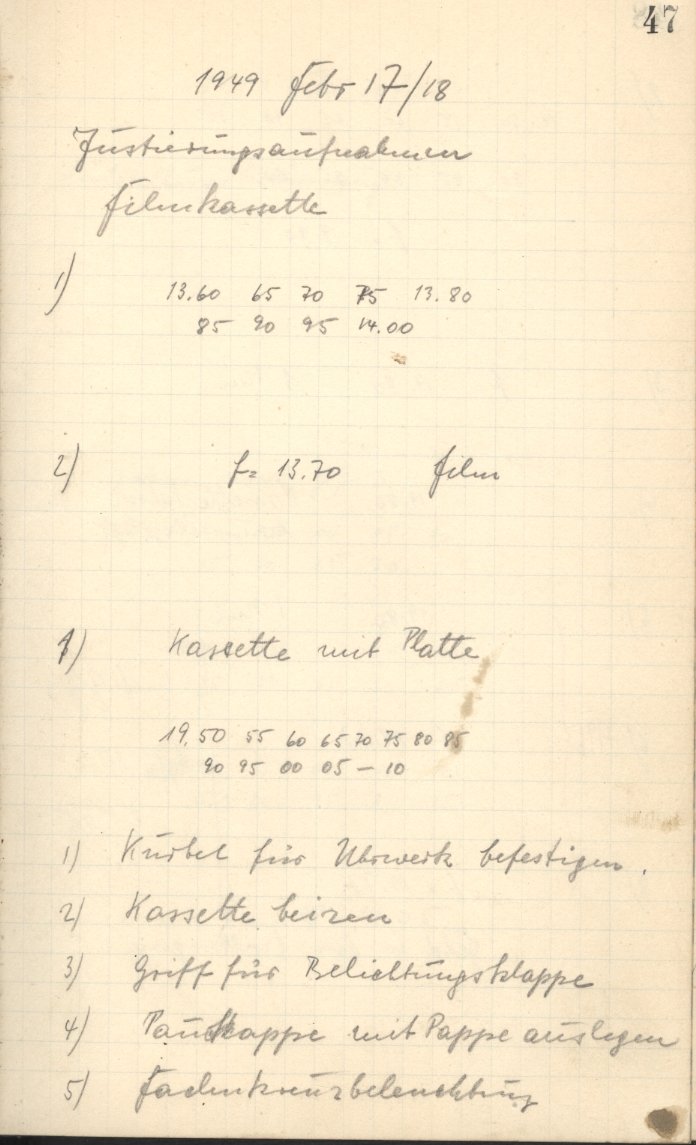 47
1949 Febr 17/18
Justierungsaufnahmen
Filmkassette
1) 13.60 65 70 75 13.80
85 90 95 14.00
2) f= 13.70 Film
1) Kassette mit Platte
19.50 55 60 65 70 75 80 85
90 95 00 05 – 10
1) Kurbel für Uhrwerk befestigen.
2) Kassette beizen
3) Griff für Belichtungsklappe
4) mit Pappe auslegen
5) Fadenkreuzbeleuchtung